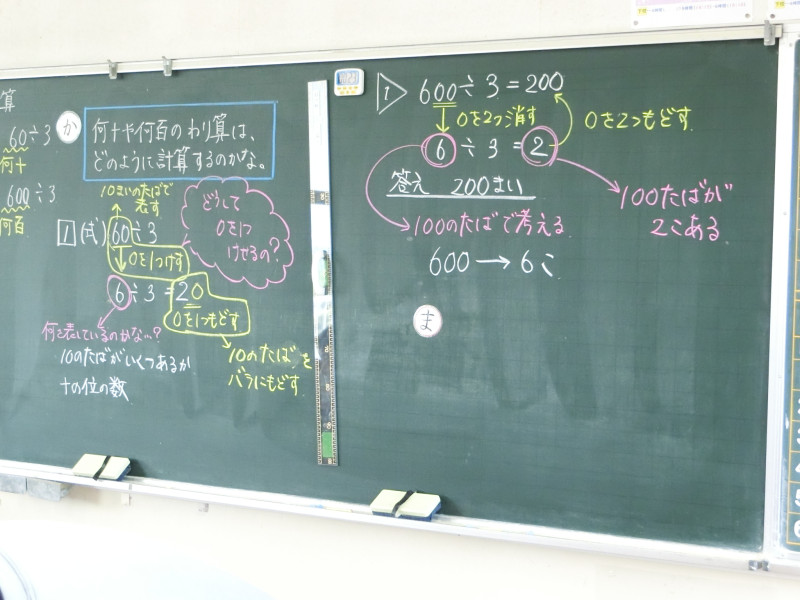 算
60÷3
何十
600÷3
何百
か
何十や何百のわり算は、
どのように計算するのかな。
10まいのたばで
表す
1 (式) 60÷3
0を1つけす
どうして
0を1つ
けせるの?
6÷3=20
0を1つもどす
何を表しているのかな…?
10のたばがいくつあるか
十の位の数
10のたばを
バラにもどす
1 600÷3=200
0を2つ消す
0を2つもどす
6÷3=2
答え 200まい
100のたばで考える
600→6こ
100たばが
2こある
ま